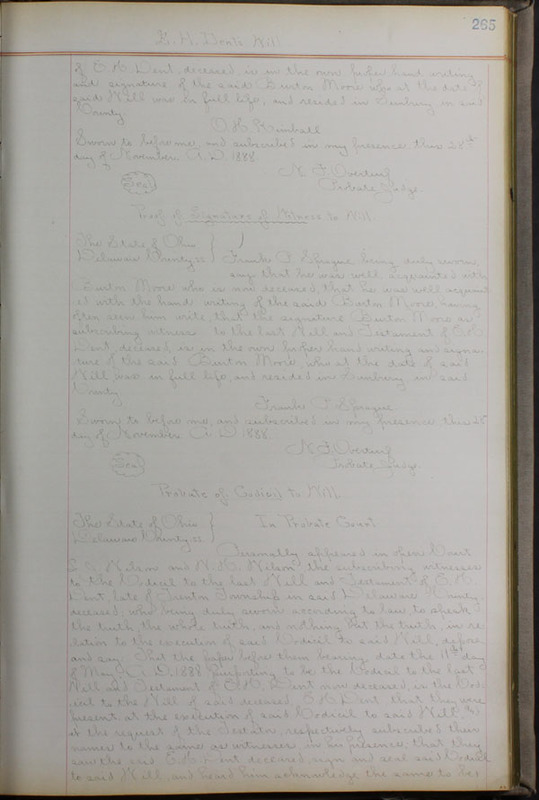 265
E. H. Dent's Will
of E. H. Dent, deceased, is in the own proper hand writing
and signature of the said Burton Moore who at the date of
said Will was in full life, and resided in Sunbury in said
County
O. H. Kimball
Sworn to before me, and subscribed in my presence this 28th
day of November A. D. 1888.
N. F. Overturf
Probate Judge.
Seal
Proof of Signature of Witness to Will
The State of Ohio
Delaware County, ss
Frank P. Sprague, being duly sworn,
says that he was well acquainted with
Burton Moore who is now deceased, that he was well acquaint
ed with the hand writing of the said Burton Moore, having
often seen him write, that the signature Burton Moore as
subscribing witness to the last Will and Testament of E. H.
Dent, deceased, is in the own proper hand writing and signa
ture of the said Burton Moore, who at the date of said
Will, was in full life, and resided in Sunbury in said
County
Frank P. Sprague
Sworn to before me, and subscribed in my presence, this 28th
day of November A. D. 1888.
N. F. Overturf
Probate Judge.
Seal
Probate of Codicil to Will.
The State of Ohio
Delaware County, ss
In Probate Court
Personally appeared in open Court
Wilson and Wilson the subscribing witnesses
to the Codicil to the last Will and Testament of E. H.
Dent, late of Trenton Township in said Delaware County
deceased; who being duly sworn according to law to speak
the truth the whole truth, and nothing but the truth, in re
lation to the execution of said Codicil to said Will, depose
and say: That the paper before them bearing date the 11th day
of May A. D. 1888 purporting to be the Codicil to the last
Will and Testament of E. H. Dent now deceased, is the Cod
icil to the Will of said deceased E. H. Dent that they were
present at the execution of said Codicil to said Will, and
at the request of the Testator, respectively subscribed their
names to the same as witnesses in his presence; that they
saw the said E. H. Dent deceased sign and seal said Codicil
to said Will, and heard him acknowledge the same to be